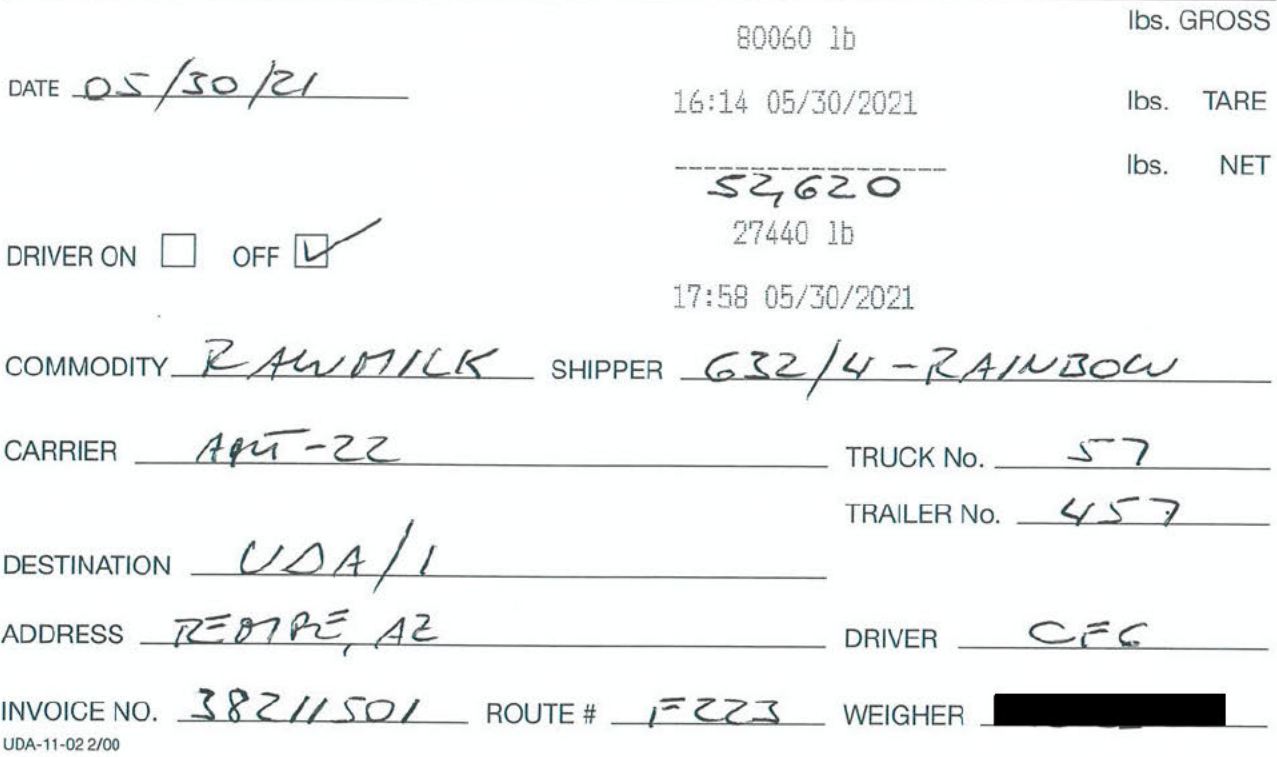 80060 lb lbs. GROSS
DATE 05/30/21 16:14 05/30/2021 lbs. TARE
-------------------- lbs. NET
52,620
27440 lb
DRIVER ON OFF
17:58 05/30/2021
COMMODITY RAWMILK SHIPPER 632/4 - RAINBOW
CARRIER -22 TRUCK No. 57
TRAILER No. 457
DESTINATION UDA/1
ADDRESS TEMPE, AZ DRIVER
INVOICE NO. 38211501 ROUTE # F223 WEIGHER
UDA-11-02 2/00